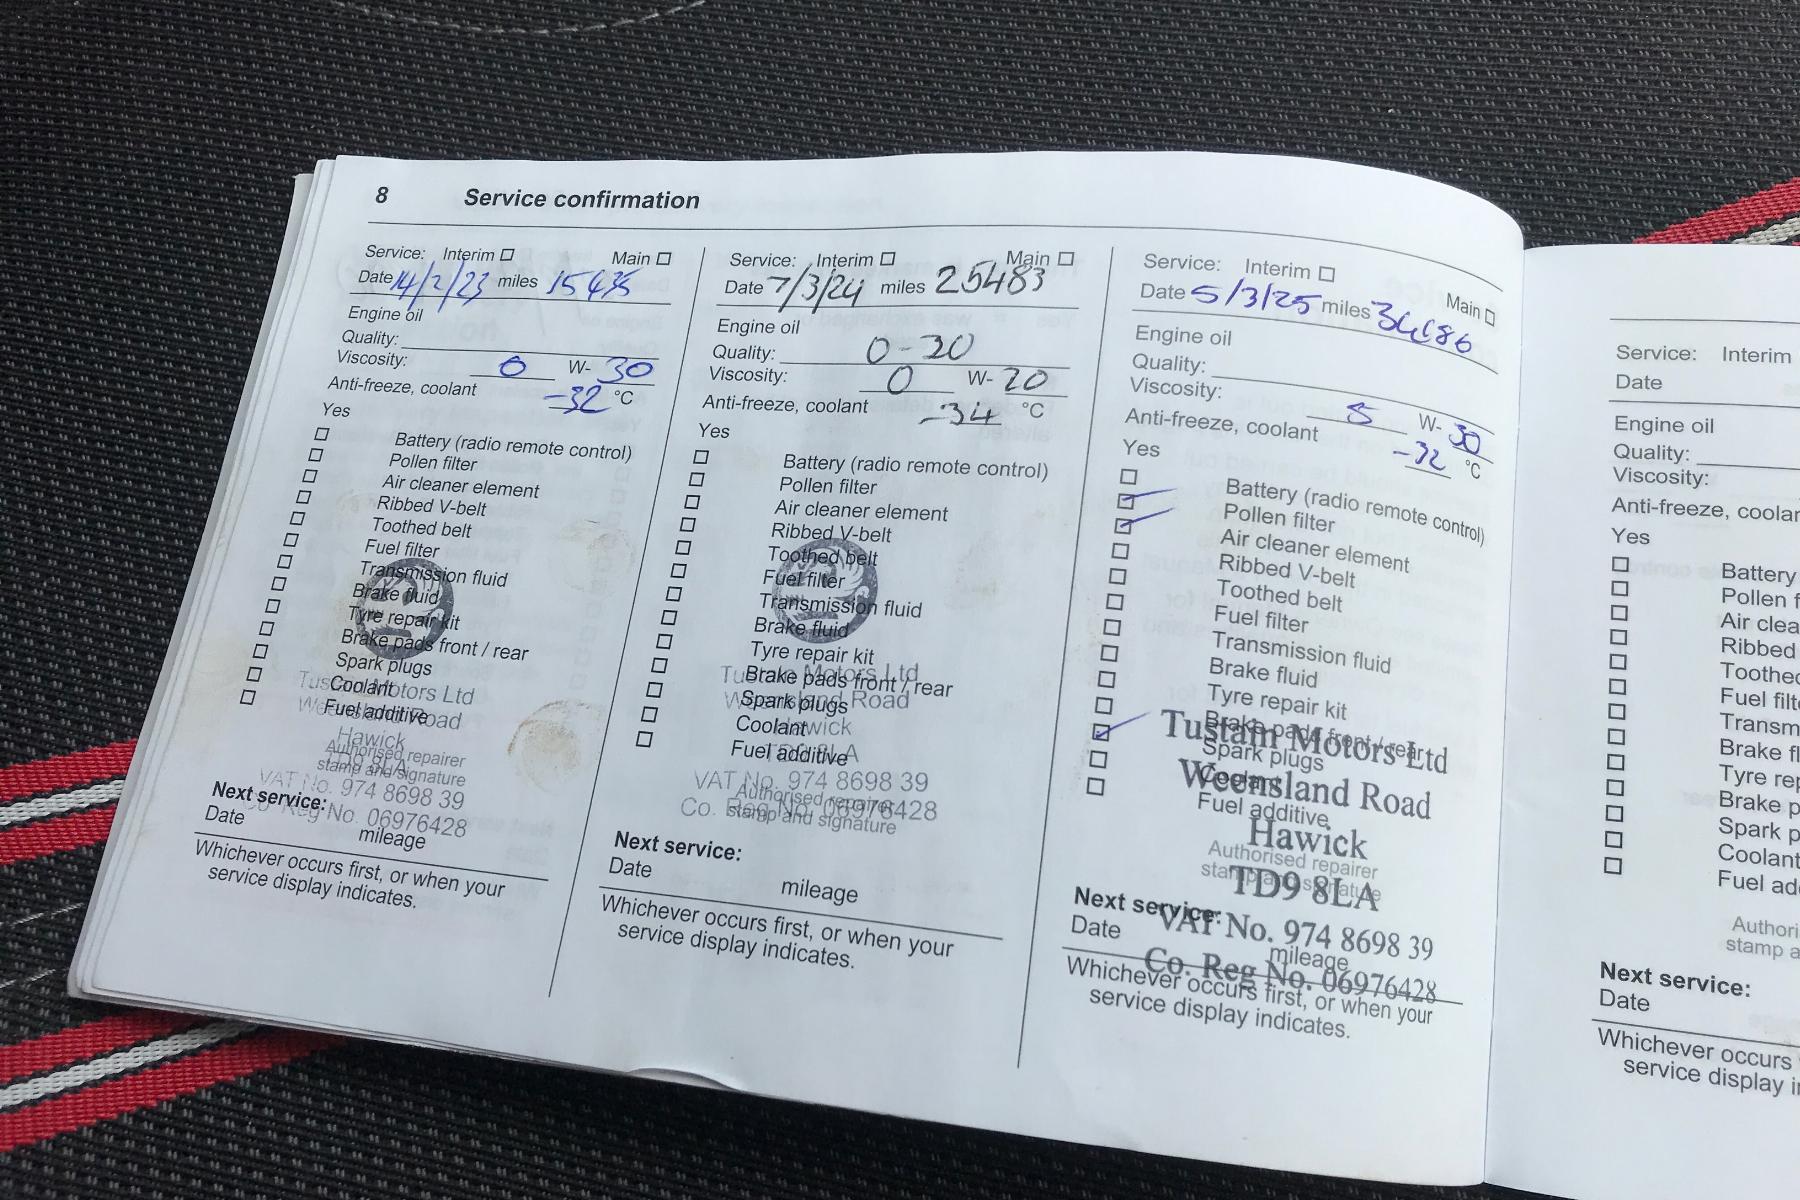 8 Service confirmation
Service: Interim Main
Date 14/2/23 miles
Engine oil
Quality:
Viscosity: 0 W- 30
Anti-freeze, coolant -32 °C
Yes
Battery (radio remote control)
Pollen filter
Air cleaner element
Ribbed V-belt
Toothed belt
Fuel filter
Transmission fluid
Brake fluid
Tyre repair kit
Brake pads front / rear
Spark plugs
Coolant
Fuel additive
Tustain Motors Ltd
Weensland Road
Hawick
TD9 8LA
VAT No. 974 8698 39
Co. Reg No. 06976428
Authorised repairer
stamp and signature
Next service:
Date mileage
Whichever occurs first, or when your
service display indicates.
Service: Interim Main
Date 7/3/24 miles 25483
Engine oil
Quality: 0-20
Viscosity: 0 W- 20
Anti-freeze, coolant -34 °C
Yes
Battery (radio remote control)
Pollen filter
Air cleaner element
Ribbed V-belt
Toothed belt
Fuel filter
Transmission fluid
Brake fluid
Tyre repair kit
Brake pads front / rear
Spark plugs
Coolant
Fuel additive
Tustain Motors Ltd
Weensland Road
Hawick
TD9 8LA
VAT No. 974 8698 39
Co. Reg No. 06976428
Authorised repairer
stamp and signature
Next service:
Date mileage
Whichever occurs first, or when your
service display indicates.
Service: Interim Main
Date 5/3/25 miles
Engine oil
Quality:
Viscosity: 5 W- 30
Anti-freeze, coolant -32 °C
Yes
Battery (radio remote control)
Pollen filter
Air cleaner element
Ribbed V-belt
Toothed belt
Fuel filter
Transmission fluid
Brake fluid
Tyre repair kit
Brake pads front / rear
Spark plugs
Coolant
Fuel additive
Tustain Motors Ltd
Weensland Road
Hawick
TD9 8LA
VAT No. 974 8698 39
Co. Reg No. 06976428
Authorised repairer
stamp and signature
Next service:
Date mileage
Whichever occurs first, or when your
service display indicates.
Service: Interim
Date
Engine oil
Quality:
Viscosity:
Anti-freeze, coolan
Yes
Battery
Pollen f
Air clea
Ribbed
Toothed
Fuel filt
Transm
Brake fl
Tyre rep
Brake p
Spark p
Coolant
Fuel ad
Authori
stamp a
Next service:
Date
Whichever occurs
service display i